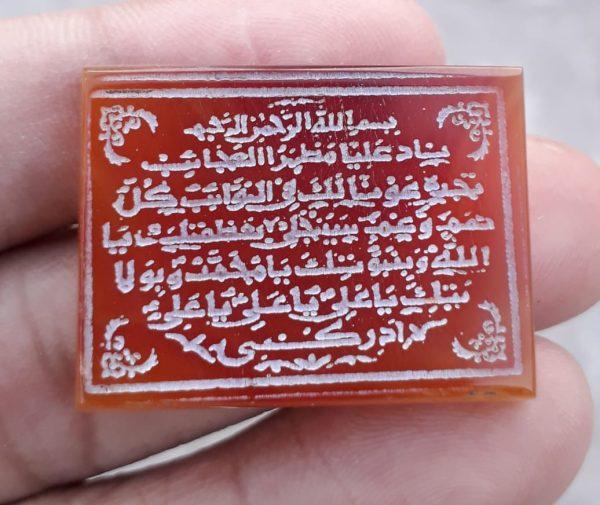 بسم الله الرحمن الرحيم
يناد عليا مظهر العجائب
تجده عونا لك في النوائب كل
هم وغم سينجلي بعظمتك يا
الله وبنبوتك يا محمد وبولا
يتك يا علي يا علي يا علي
ادركني